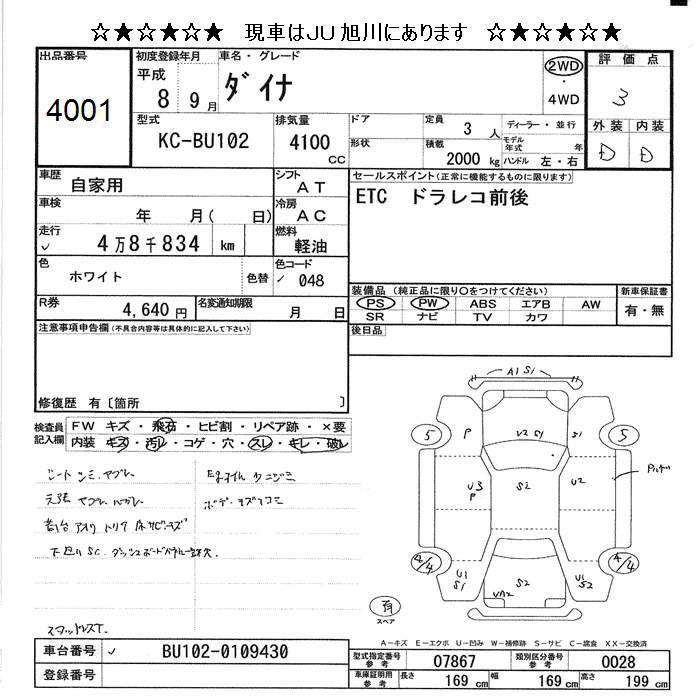 ☆★☆★☆★ 現車はJU旭川にあります ☆★☆★☆★
出品番号
4001
初度登録年月
平成
8 9月
車名・グレード
ダイナ
2WD
・
4WD
評価点
3
外装 内装
D D
型式
KC-BU102
排気量
4100
CC
ドア
形状
定員
3 人
積載
2000 kg
ディーラー・並行
モデル年式 年
ハンドル 左・右
車歴
自家用
シフト
AT
車検
年 月( 日)
冷房
AC
走行
✓ 4万8千834 km
燃料
軽油
色
ホワイト
色替
色コード
✓ 048
R券
4,640 円
名変通知期限
月 日
セールスポイント(正常に機能するものに限ります)
ETC ドラレコ前後
装備品(純正品に限り○をつけてください)
PS PW ABS エアB AW
SR ナビ TV カワ
新車保証書
有・無
後日品
注意事項申告欄(不具合内容等は具体的に記入して下さい)
修復歴 有〔箇所 〕
検査員記入欄
FW キズ・飛石・ヒビ割・リペア跡・×要
内装 キズ・汚れ・コゲ・穴・スレ・キレ・破レ
下回りSC.
スタッドレスT.
A1 S1
5
P
S1
5
U3
P
S2
U2
4/4
U1
S1
S2
UA2
U1
S2
4/4
有
スペア
A-キズ E-エクボ U-凹み W-補修跡 S-サビ C-腐食 XX-交換済
車台番号 ✓ BU102-0109430
登録番号
型式指定番号参考 07867
類別区分番号参考 0028
車庫証明用参考 長さ 169 cm 幅 169 cm 高さ 199 cm